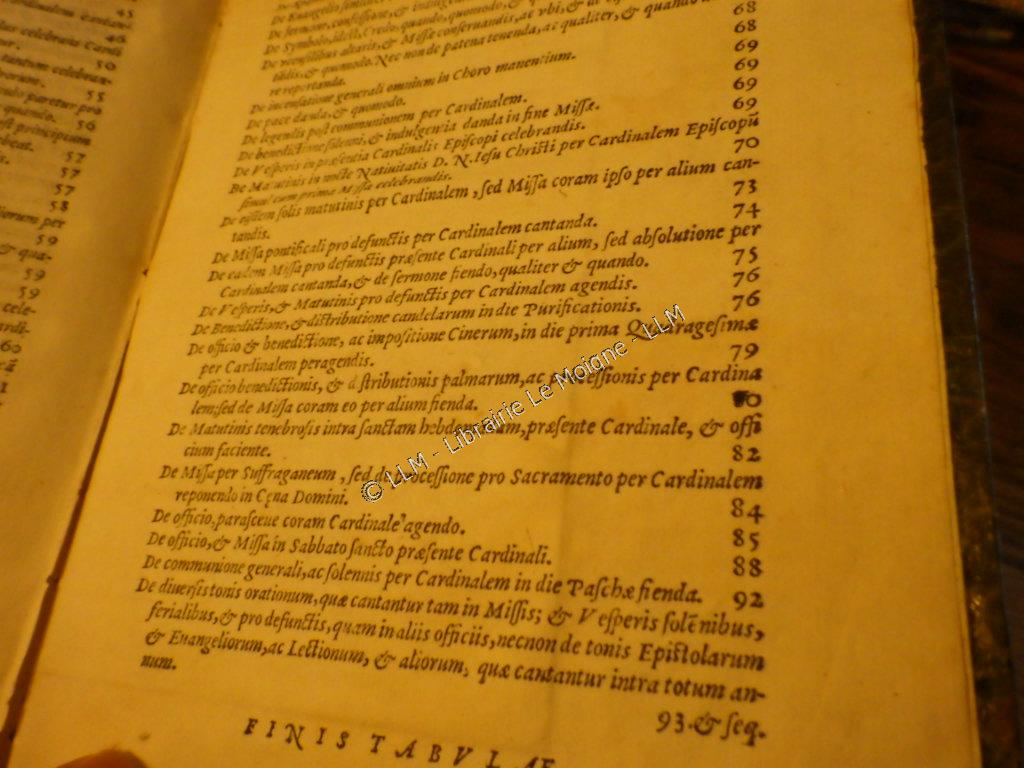 45
46
50
55
56
57
57
57
58
59
59
59
60
De Euangelio
De sermone, confessione, &
De Symbolo, idest, Credo, quando, quomodo, &
De altaris, & Missæ conseruandis, ac vbi, & de
quomodo. Nec non de patena tenenda, ac qualiter, & quando
re reportanda. 68
68
De incensatione generali omnium in Choro manentium. 69
De pace danda, & quomodo. 69
De legendis post communionem per Cardinalem. 69
De benedictione solenni, & indulgentia danda in fine Missæ. 69
De Vesperis in præsentia Cardinalis Episcopi celebrandis.
De Matutinis in nocte Natiuitatis D. N. Iesu Christi per Cardinalem Episcopũ
simul cum prima Missa celebrandis. 70
De eisdem solis matutinis per Cardinalem, sed Missa coram ipso per alium can-
tandis. 73
De Missa pontificali pro defunctis per Cardinalem cantanda. 74
De eadem Missa pro defunctis præsente Cardinali per alium, sed absolutione per
Cardinalem cantanda, & de sermone fiendo, qualiter & quando. 75
De Vesperis, & Matutinis pro defunctis per Cardinalem agendis. 76
De Benedictione, & distributione candelarum in die Purificationis. 76
De officio & benedictione, ac impositione Cinerum, in die prima Quadragesimæ
per Cardinalem peragendis. 79
De officio benedictionis, & distributionis palmarum, ac processionis per Cardina
lem; sed de Missa coram eo per alium fienda. 80
De Matutinis tenebrosis intra sanctam hebdomadam, præsente Cardinale, & offi
cium faciente. 82
De Missa per Suffraganeum, sed de processione pro Sacramento per Cardinalem
reponendo in Cęna Domini. 84
De officio, parasceue coram Cardinale agendo. 85
De officio, & Missa in Sabbato sancto præsente Cardinali. 88
De communione generali, ac solennis per Cardinalem in die Paschæ fienda. 92
De diuersis tonis orationum, quæ cantantur tam in Missis; & Vesperis solẽnibus,
ferialibus, & pro defunctis, quam in aliis officiis, necnon de tonis Epistolarum
& Euangeliorum, ac Lectionum, & aliorum, quæ cantantur intra totum an-
num. 93. & seq.
FINIS TABVLAE
© LLM - Librairie Le Moigne - LLM